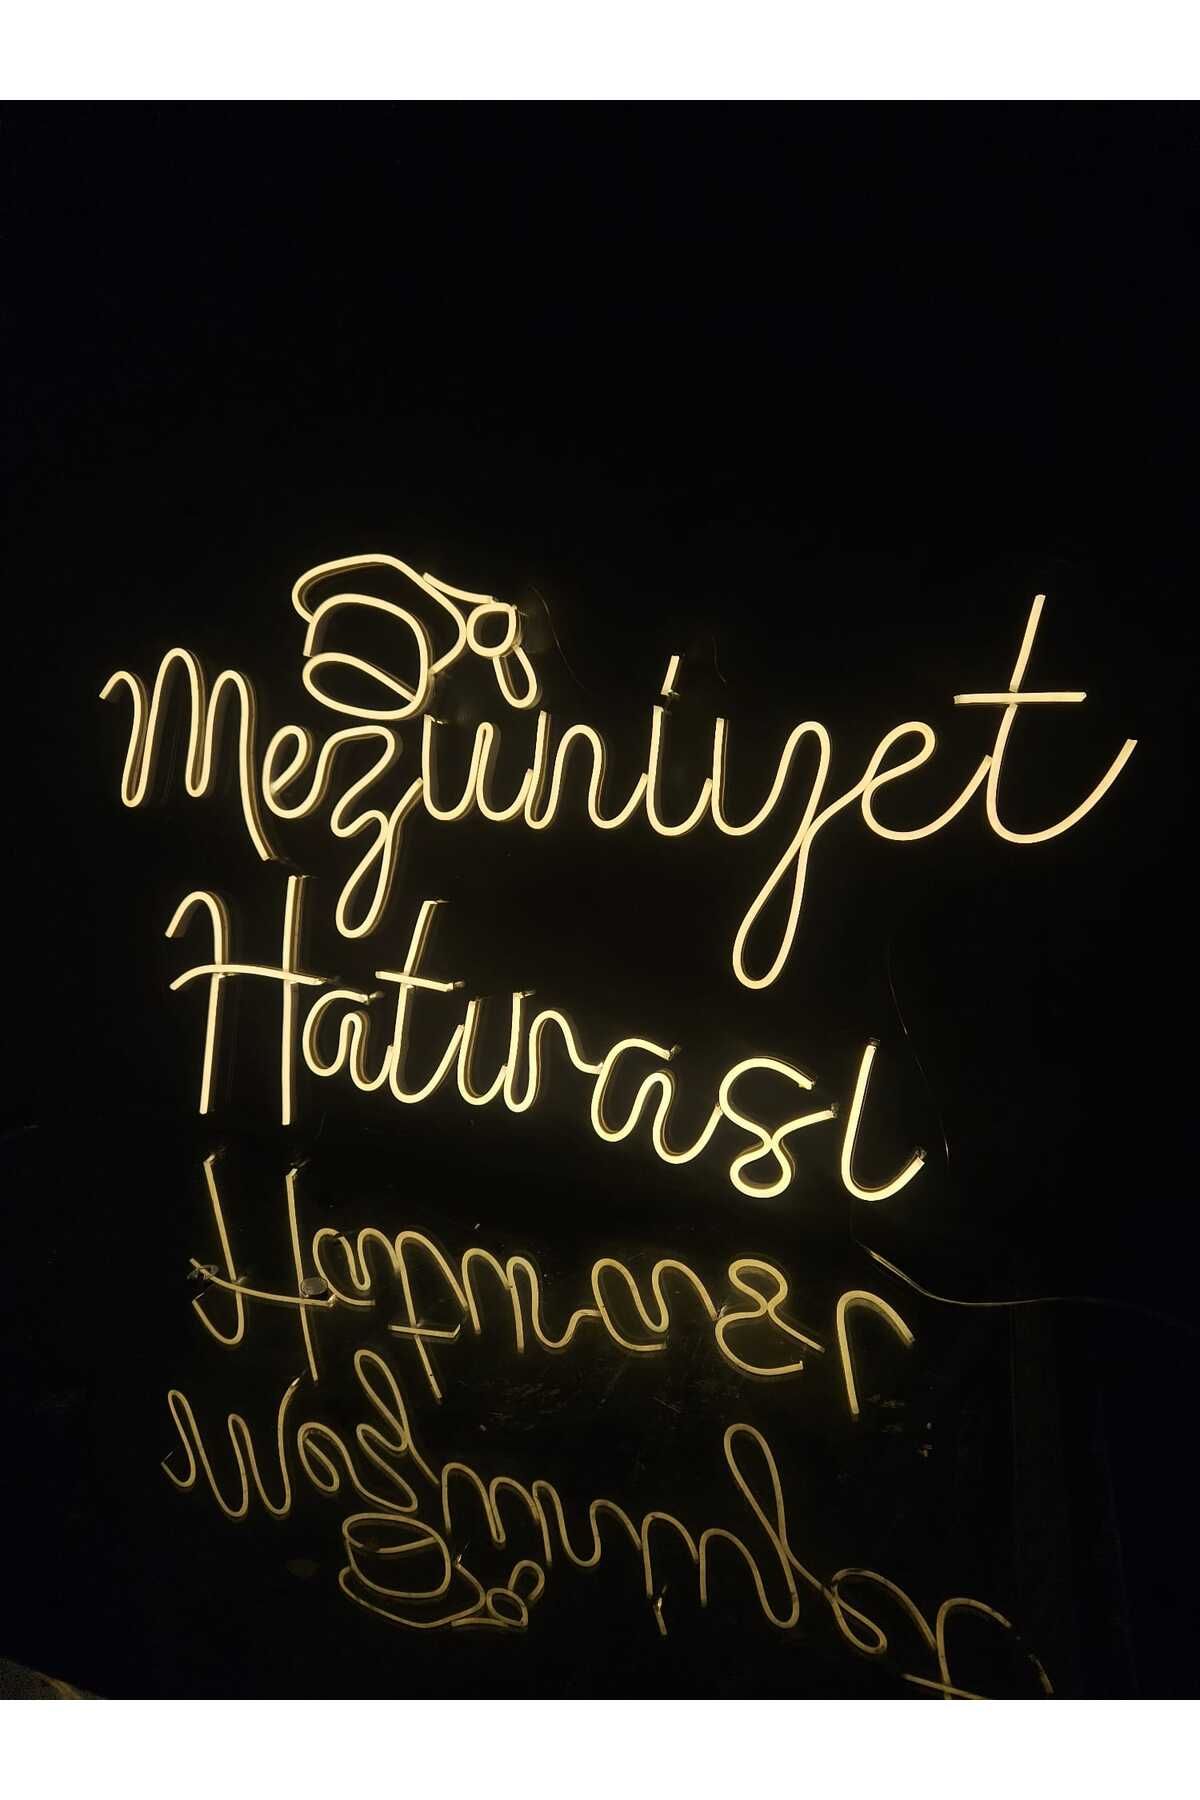 Mezuniyet
Hatırası